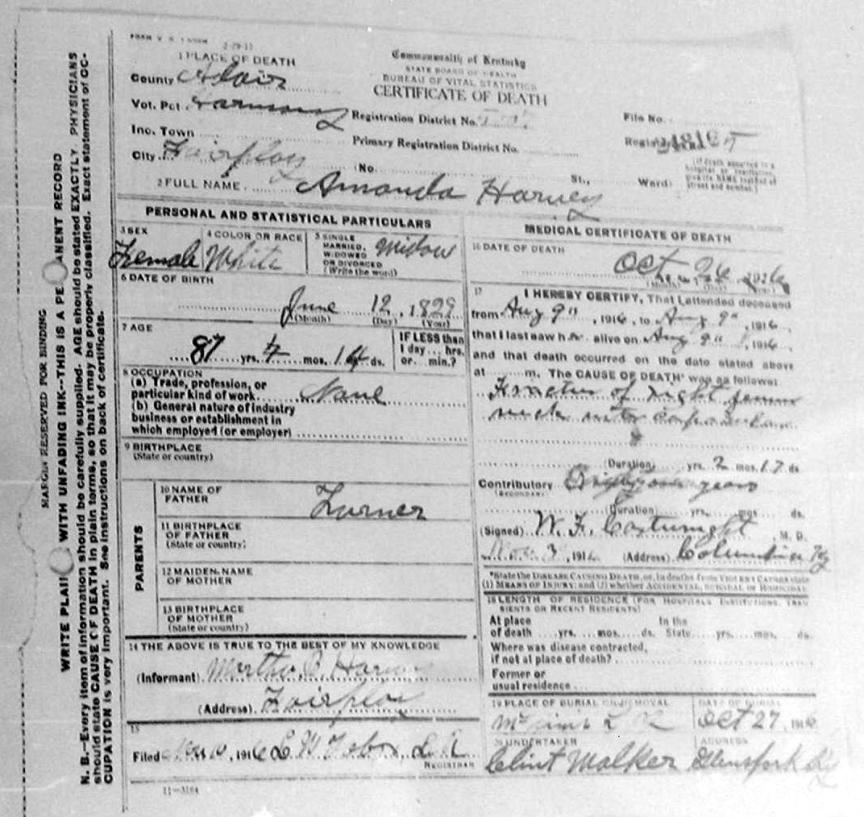 2-29-11
Commonwealth of Kentucky
STATE BOARD OF HEALTH
BUREAU OF VITAL STATISTICS
CERTIFICATE OF DEATH
1 PLACE OF DEATH
County Adair
Vot. Pct. Harmony Registration District No. File No.
Inc. Town Primary Registration District No.
City Fairplay (No. St., Ward)
(If death occurred in a hospital or institution, give its NAME instead of street and number.)
2 FULL NAME Amanda Harvey
PERSONAL AND STATISTICAL PARTICULARS
3 SEX Female
4 COLOR OR RACE White
5 SINGLE MARRIED, WIDOWED OR DIVORCED (Write the word) Widow
6 DATE OF BIRTH
June 12, 1829
(Month) (Day) (Year)
7 AGE
87 yrs. 4 mos. 14 ds.
IF LESS than 1 day... hrs. or... min.?
8 OCCUPATION
(a) Trade, profession, or particular kind of work None
(b) General nature of industry
business or establishment in
which employed (or employer)
9 BIRTHPLACE
(State or country)
PARENTS
10 NAME OF FATHER Turner
11 BIRTHPLACE OF FATHER (State or country)
12 MAIDEN NAME OF MOTHER
13 BIRTHPLACE OF MOTHER (State or country)
14 THE ABOVE IS TRUE TO THE BEST OF MY KNOWLEDGE
(Informant)
(Address) Fairplay
15
Filed 1916
REGISTRAR
11-3184
MEDICAL CERTIFICATE OF DEATH
16 DATE OF DEATH
Oct 26 1916
(Month) (Day) (Year)
17 I HEREBY CERTIFY, That I attended deceased
from Aug 9", 1916, to Aug 9", 1916
that I last saw h alive on Aug 9", 1916
and that death occurred on the date stated above
at m. The CAUSE OF DEATH* was as follows:
Fracture of right femur
(Duration) yrs. 2 mos. 17 ds.
Contributory
(SECONDARY)
(Duration) yrs. mos. ds.
(Signed) W. F. Cartwright M. D.
Nov 3, 1916 (Address) Columbia Ky
*State the DISEASE CAUSING DEATH, or, in deaths from VIOLENT CAUSES state
(1) MEANS OF INJURY; and (2) whether ACCIDENTAL, SUICIDAL or HOMICIDAL
18 LENGTH OF RESIDENCE (FOR HOSPITALS, INSTITUTIONS, TRANSIENTS OR RECENT RESIDENTS)
At place of death yrs. mos. ds. In the State yrs. mos. ds.
Where was disease contracted,
if not at place of death?
Former or
usual residence
19 PLACE OF BURIAL OR REMOVAL
DATE OF BURIAL
Oct 27, 1916
20 UNDERTAKER
Clint Walker
ADDRESS
Glensfork Ky
MARGIN RESERVED FOR BINDING
WRITE PLAINLY WITH UNFADING INK--THIS IS A PERMANENT RECORD
N. B.--Every item of information should be carefully supplied. AGE should be stated EXACTLY. PHYSICIANS
should state CAUSE OF DEATH in plain terms, so that it may be properly classified. Exact statement of OC-
CUPATION is very important. See instructions on back of certificate.